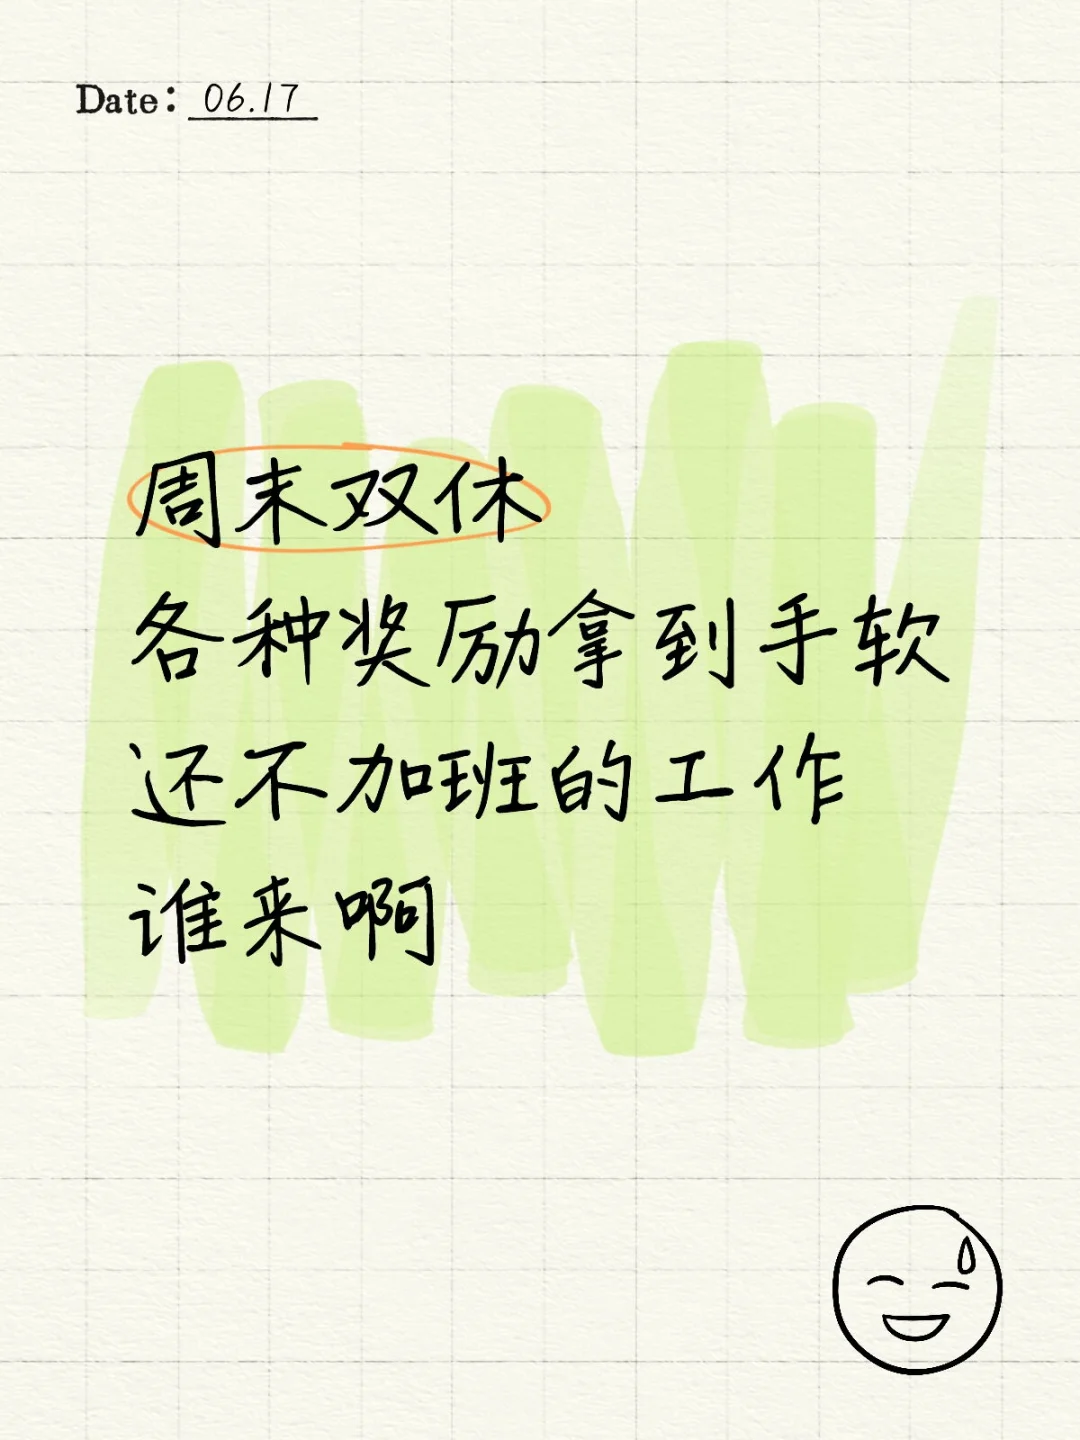 Date: 06.17
周末双休
各种奖励拿到手软
还不加班的工作
谁来啊